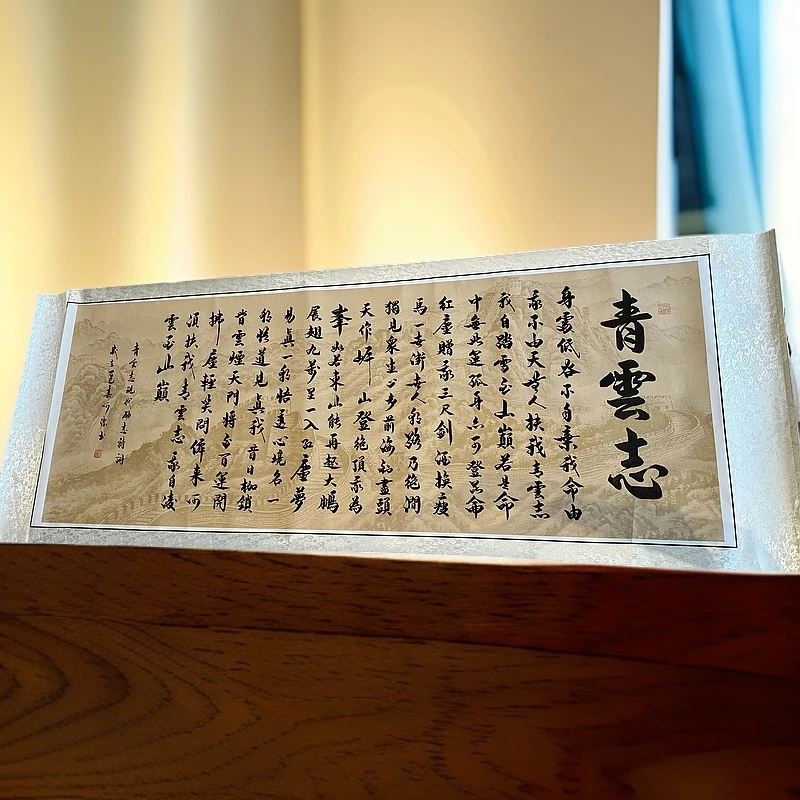 青雲志
身處低谷不自棄我命由
我不由天世人扶我青雲志
我自踏雪至山巔若是命
中無此運孤身亦可登昆侖
紅塵贈我三尺劍酒換瘦
馬一世街世人我路乃絕澗
獨見眾生心步前海到盡頭
天作岸山登絕頂我為
峯如若東山能再起大鵬
展翅九萬里一入紅塵夢
易真一朝悟透心境名一
朝悟道見真我昔日枷鎖
皆雲煙天門將至百運開
拂塵輕笑問來何
須扶我青雲志我自凌
雲至山巔
青雲志現代勵志詩詞
書